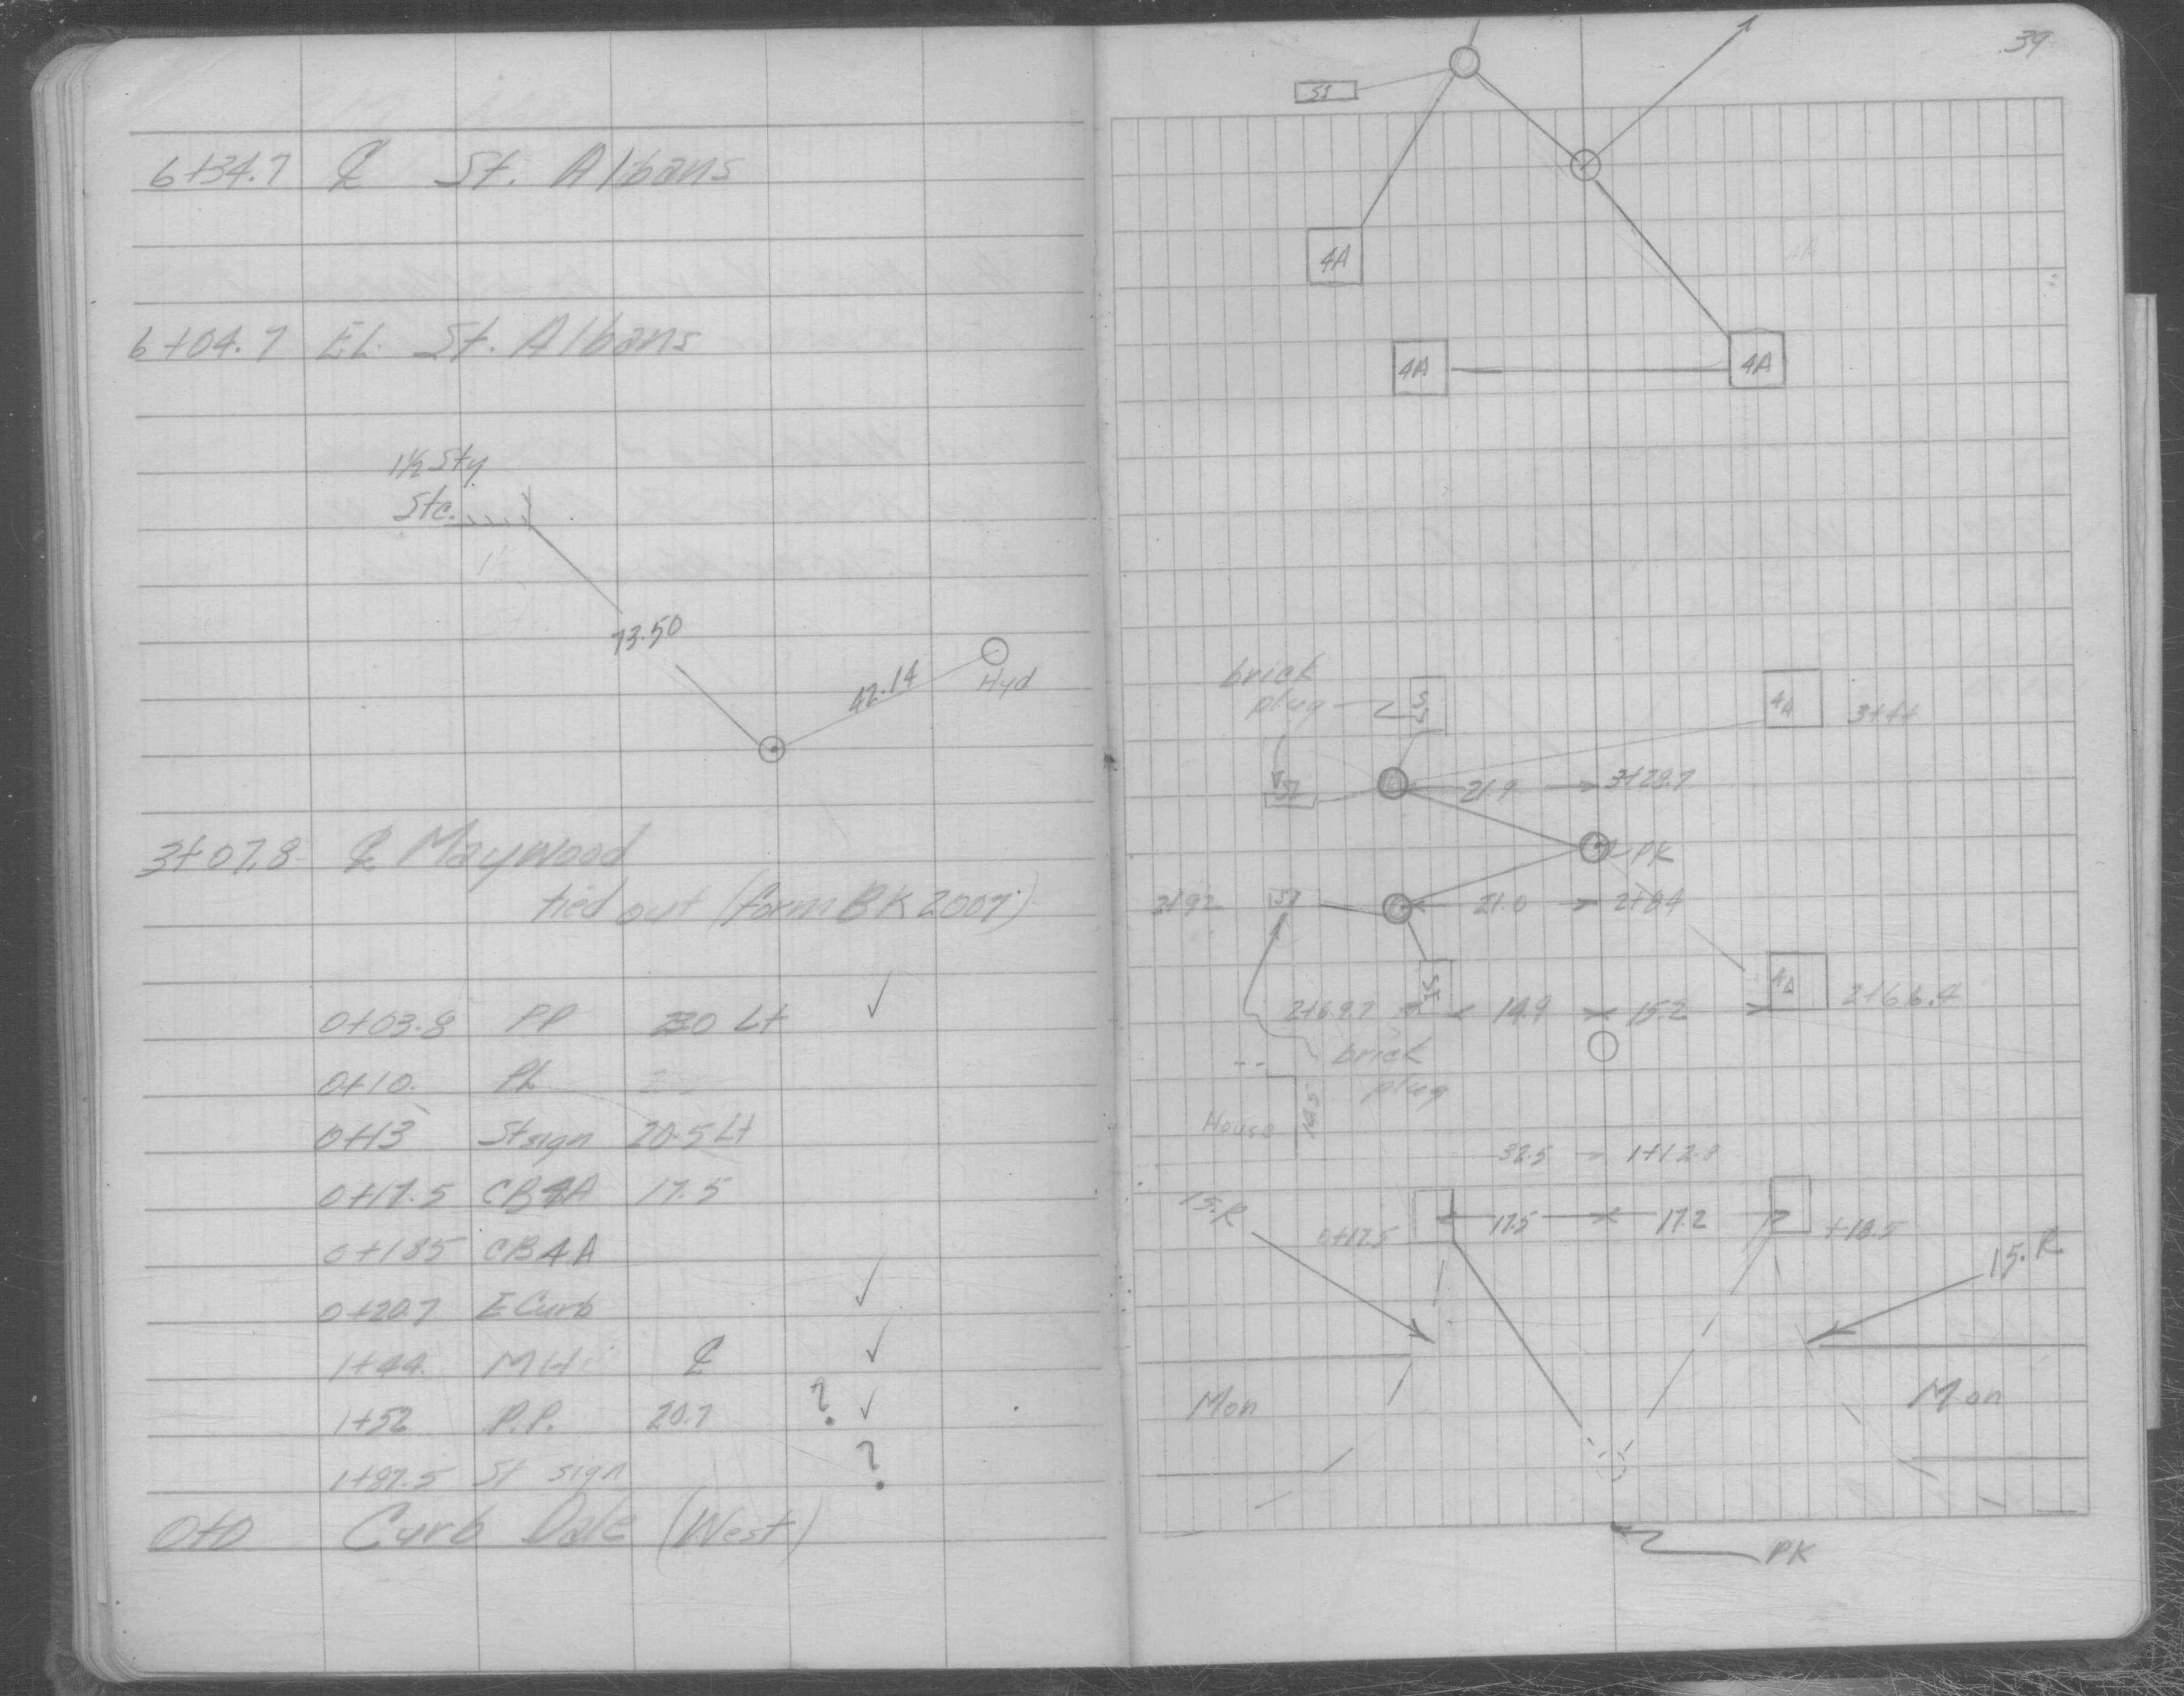 6+34.7 ℄ St. Albans
6+04.7 E.L. St. Albans
1½ Sty
Stc.
73.50
42.14
Hyd
3+07.8 ℄ Maywood
tied out (form BK 2007)
0+03.8 PP Lt ✓
0+10. PL
0+13 St sign 20.5 Lt
0+17.5 CB4A 17.5
0+18.5 CB4A
0+20.7 E Curb ✓
1+44. MH ℄ ✓
1+52 P.P. 20.7 ? ✓
1+87.5 St sign ?
0+0 Curb Dale (West)
39
SI
4A
4A 4A
brick
plug SI 4A
SI 21.9 3+28.7
PK
SI 21.0
SI 4A 2+66.4
2+69.7 14.9 15.2
brick
plug
House
32.5
15.R
0+17.5 17.5 17.2 +18.5
15.R
Mon Mon
PK